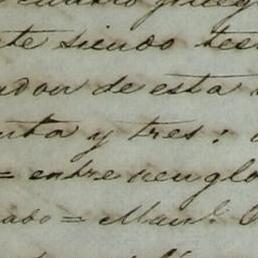 te siendo tes
ador de esta
nta y tres: 
= entre renglo
abo = Man.l